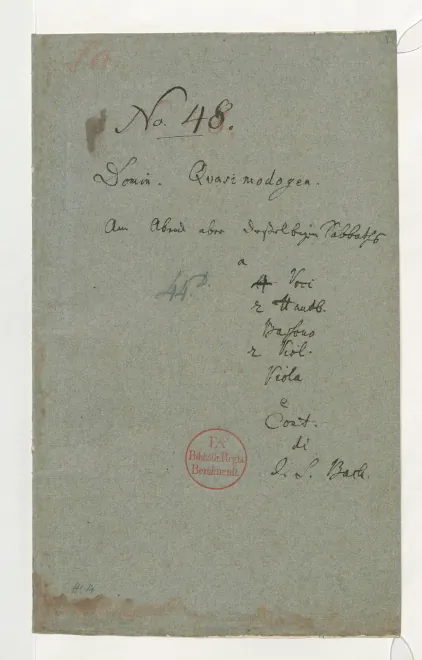 No. 48.
Domin. Quasimodogen.
Am Abend aber desselbigen Sabbaths
a
4 Voci
2 Hautb.
Bassono
2 Viol.
Viola
e
Cont.
di
J. S. Bach.
Ex
Biblioth. Regia
Berolinensi.